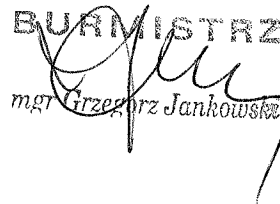 BURMISTRZ
mgr Grzegorz Jankowski